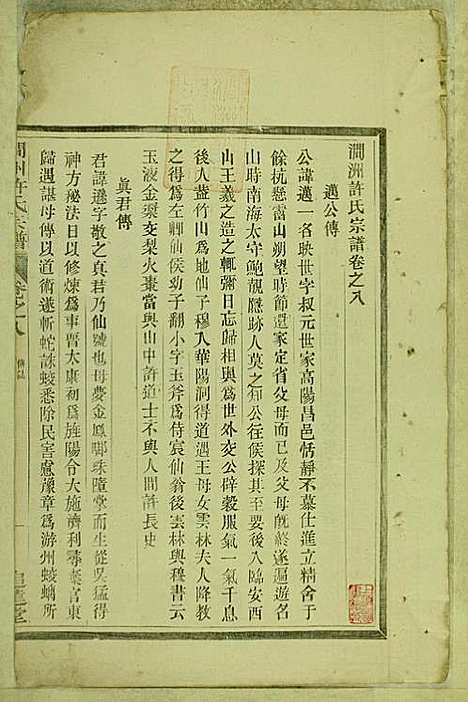 澗洲許氏宗譜卷之八
邁公傳
公諱邁一名映世字叔元世家高陽昌邑恬靜不慕仕進立精舍于
餘杭懸霤山朔望時節還家定省父母而已及父母旣終遂遍遊名
山時南海太守鮑靚隱跡人莫之知公往候探其至要後入臨安西
山王羲之造之輒彌日忘歸相與爲世外交公辟穀服氣一氣千息
後入蓋竹山爲地仙子穆入華陽洞得道遇王母女雲林夫人降教
之得爲左卿仙侯幼子翽小字玉斧爲侍宸仙翁後雲林與穆書云
玉液金漿交梨火棗當與山中許道士不與人間許長史
眞君傳
君諱遜字敬之眞君乃仙號也母夢金鳳啣珠墮掌而生從吳猛得
神方秘法日以修煉爲事晉太康初爲旌陽令大施濟利尋棄官東
歸遇諶母傳以道術遂斬蛇誅蛟悉除民害慮豫章爲游州蛟螭所
澗州許氏宗譜
卷之八
傳誌
一